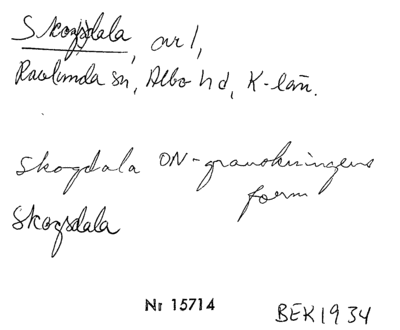 Skogsdala, avl,
Ravlunda sn, Albo hd, K-län.
Skogdala ON-granskningens
form
Skogsdala
Nr 15714
BEK1934